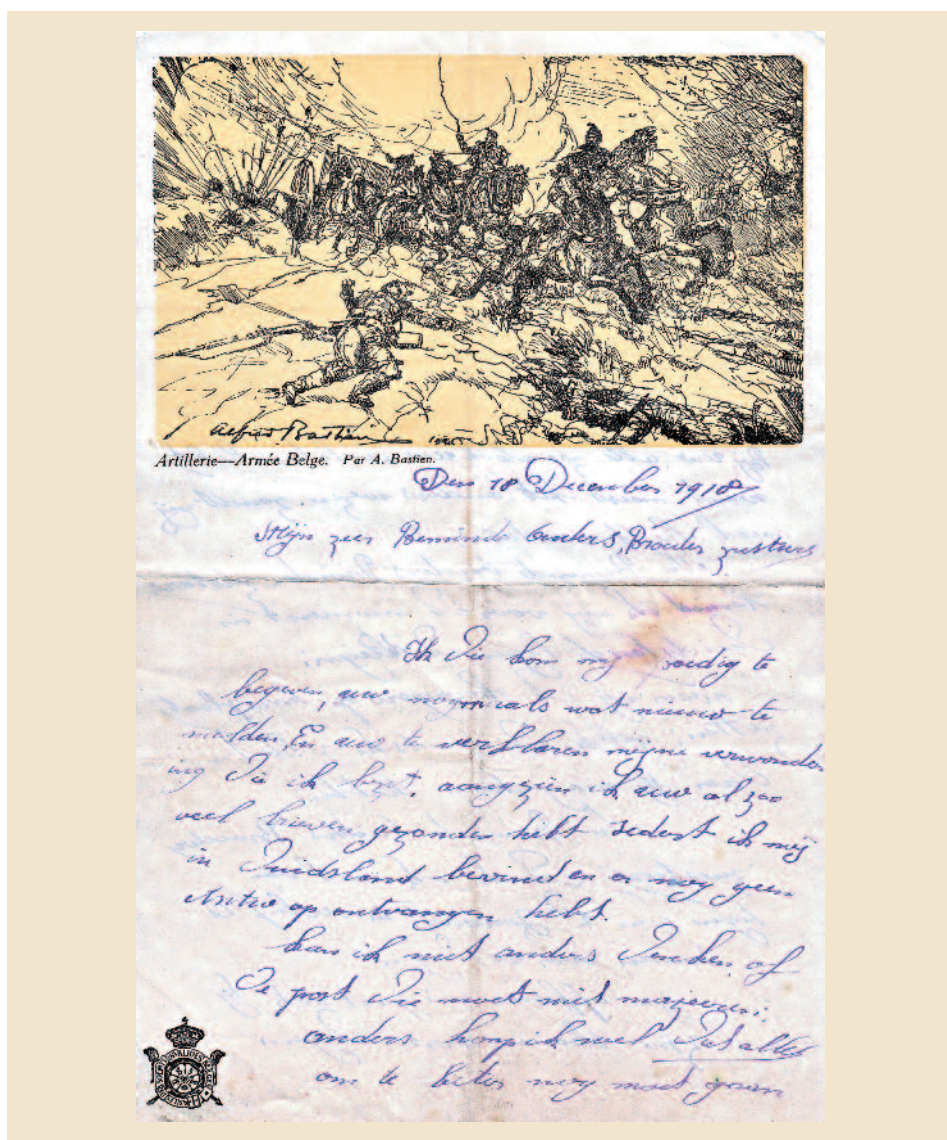 Alfred Bastien
Artillerie—Armée Belge. Par A. Bastien.
Den 18 December 1918
Mijn zeer Beminde Ouders, Broeder zusters
Ik Die kom mij spoedig te
begeven, uw nogmaals wat nieuw te
melden En uw te verklaren mijne verwonder
ing Die ik bezt. aangezien ik uw al zoo
veel brieven gezonden hebt sedert ik mij
in Duidsland bevind en er nog geen
Antwo op ontvangen hebt.
kan ik niet anders Denken of
De post Die moet niet marjeeren:
anders hoop ik wel Dat alles
om te beter nog moet gaan